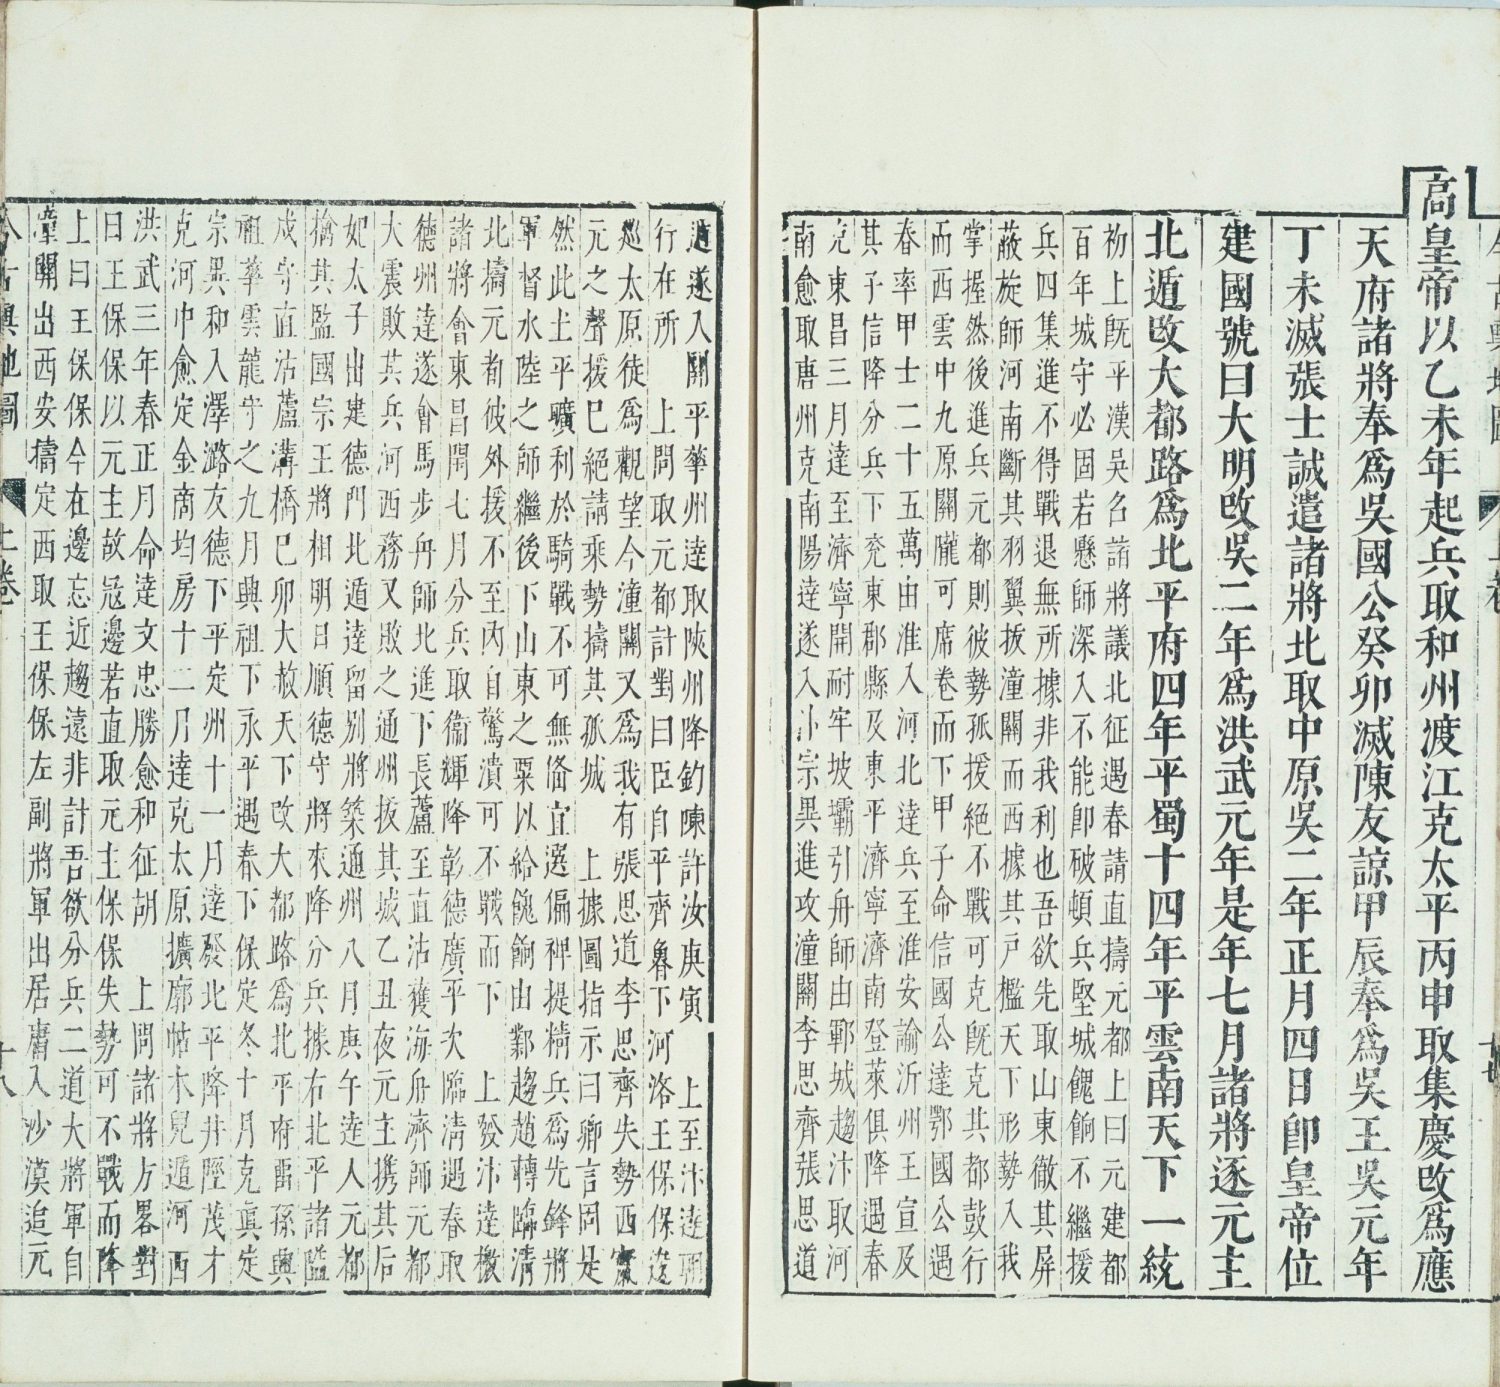 今古輿地圖
上卷
高皇帝以乙未年起兵取和州渡江克太平丙申取集慶改爲應
天府諸將奉爲吳國公癸卯滅陳友諒甲辰奉爲吳王吳元年
丁未滅張士誠遣諸將北取中原吳二年正月四日卽皇帝位
建國號曰大明改吳二年爲洪武元年是年七月諸將逐元主
北遁改大都路爲北平府四年平蜀十四年平雲南天下一統
初上旣平漢吳召諸將議北征遇春請直擣元都上曰元建都
百年城守必固若懸師深入不能卽破頓兵堅城餽餉不繼援
兵四集進不得戰退無所據非我利也吾欲先取山東徹其屏
蔽旋師河南斷其羽翼拔潼關而西據其戸檻天下形勢入我
掌握然後進兵元都則彼勢孤援絕不戰可克旣克其都鼓行
而西雲中九原關隴可席卷而下甲子命信國公達鄂國公遇
春率甲士二十五萬由淮入河北達兵至淮安諭沂州王宣及
其子信降分兵下兖東郡縣及東平濟寧濟南登萊俱降遇春
克東昌三月達至濟寧開耐牢坡壩引舟師由鄆城趨汴取河
南愈取唐州克南陽達遂入汴宗異進攻潼關李思齊張思道
遁遂入關平華州達取陜州降鈞陳許汝庚寅　上至汴達朝
行在所　上問取元都計對曰臣自平齊魯下河洛王保保逡
巡太原徒爲觀望今潼關又爲我有張思道李思齊失勢西竄
元之聲援已絕請乘勢擣其孤城　上據圖指示曰卿言固是
然此土平曠利於騎戰不可無俻宜選偏裨提精兵爲先鋒將
軍督水陸之師繼後下山東之粟以給餽餉由鄴趨趙轉臨淸
北擣元都彼外援不至內自驚潰可不戰而下　上發汴達檄
諸將會東昌閏七月分兵取衞輝降彰德廣平次臨淸遇春取
德州達遂會馬步舟師北進下長蘆至直沽獲海舟濟師元都
大震敗其兵河西務又敗之通州拔其城乙丑夜元主携其后
妃太子出建德門北遁達留别將築通州八月庚午達人元都
擒其監國宗王將相明日順德守將來降分兵據右北平諸隘
戍守直沽蘆溝橋巳卯大赦天下改大都路爲北平府雷孫興
祖華雲龍守之九月興祖下永平遇春下保定冬十月克眞定
宗異和入澤潞友德下平定州十一月達發北平降井陘茂才
克河中愈定金商均房十二月達克太原擴廓帖木兒遁河西
洪武三年春正月命達文忠勝愈和征胡　上問諸將方畧對
曰王保保以元主故冦邊若直取元主保保失勢可不戰而降
上曰王保保今在邊忘近趨遠非計吾欲分兵二道大將軍自
潼關出西安擣定西取王保保左副將軍出居庸入沙漠追元
今古輿地圖
上卷
十八